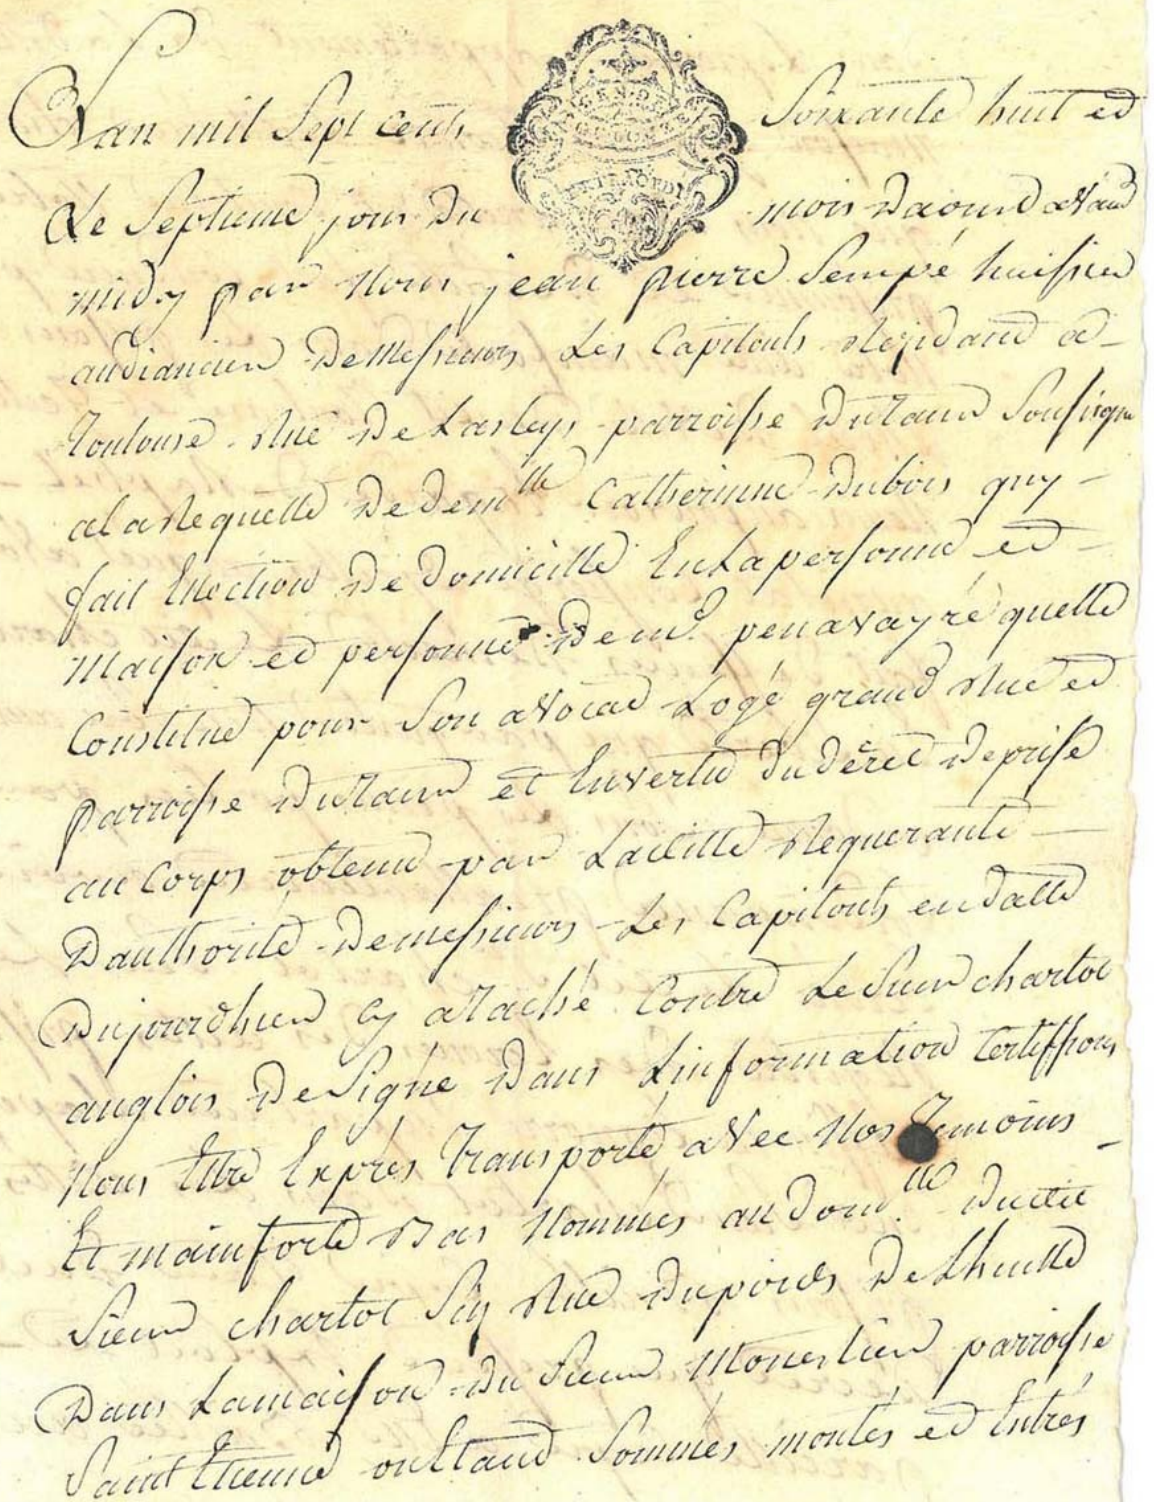 L'an mil sept cents soixante huit et
le septieme jour du mois daoust avant
midy par nous jean pierre sempé huissier
audiancier de messieurs les capitouls residant a
toulouse rue de lasleys parroisse du taur soussigne
a la requette de dem.lle catherinne dubois quy
fait ellection de domicille en la personne et
maison et personne de me. penavayré quelle
constitue pour son avocat logé grand rue et
parroisse du taur et en vertu du décret de prise
au corps obtenu par laditte requerante
dauthorité de messieurs les capitouls en datte
dujourdhuy cy ataché contre le sieur charlot
anglois designe dans linformation certiffions
nous être exprès transporté avec nos temoins
et mainforte bas nommés au dom.lle dudit
sieur charlot sis rue du poids de lhuille
dans la maison du sieur monestier parroisse
saint etienne ou etant sommes montés et entrés
GEN. DE
TOULOUSE